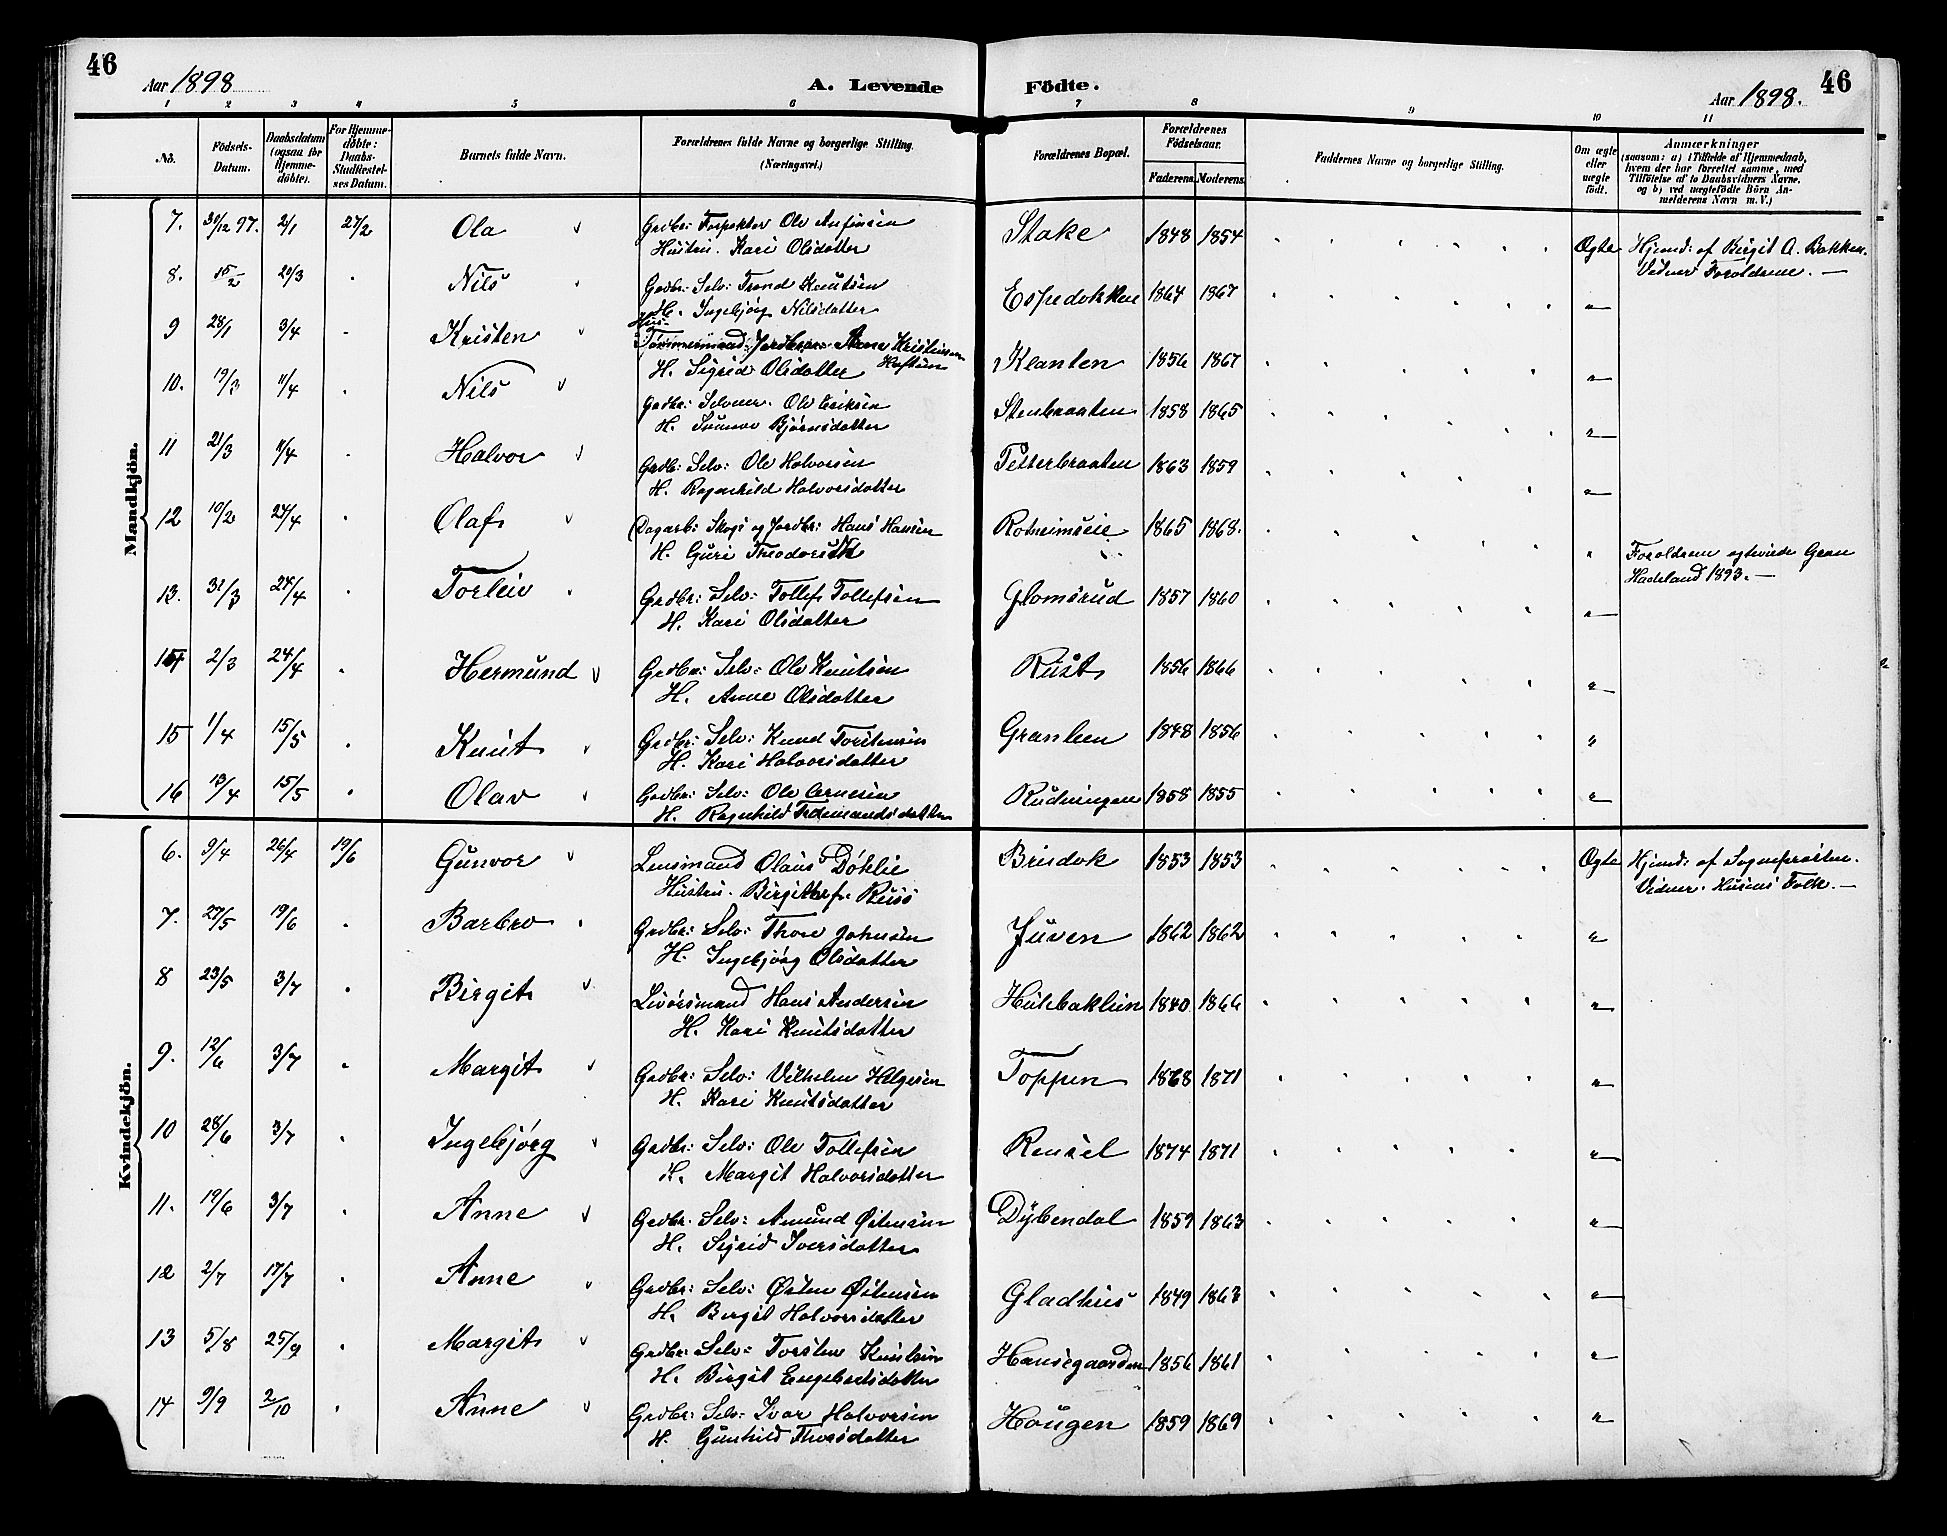 46
Aar 1898
A. Levende Födte.
Aar 1898.
46
1 2 3 4 5 6 7 8 9 10 11
No.
Födsels-Datum.
Daabsdatum (ogsaa for Hjemme-döbte).
For Hjemme-döbte: Daabs-Stadfæstel-ses Datum.
Barnets fulde Navn.
Forældrenes fulde Navne og borgerlige Stilling.
(Næringsvei.)
Forældrenes Bopæl.
Forældrenes Födselsaar.
Faderens. Moderens.
Faddernes Navne og borgerlige Stilling.
Om ægte eller uægte födt.
Anmærkninger
(saasom: a) i Tilfælde af Hjemmedaab,
hvem der har forrettet samme, med
Tilföielse af to Daabsvidners Navne,
og b) ved uægtefödte Börn An-
melderens Navn m. V.)
Mandkjön.
7. 31/12 97. 2/1 27/2 Ola Grdbr: Inspektør Ole Anfinsen Stake 1848 1854 Ægte Hjemd: af Birgit A. Bakken.
Hustru. Kari Olsdatter Vidner Foroldrene. —
8. 15/2 20/3 Nils Grdbr: Selv: Trond Knutsen Espedokken 1864 1867 "
H. Ingebjørg Nilsdatter
9 28/1 3/4 Kristen Hus-
Tømmermand: Jordbrur: Arne Kristensen Klanten 1856 1867 "
H. Sigrid Olsdatter
10. 19/3 11/4 Nils Grdbr: Selveier. Ole Eriksen Stenbraaten 1858 1865 "
H. Sünnev Bjørnsdatter
11 21/3 11/4 Halvor Grdb: Selv: Ole Halvorsen Petterbraaten 1863 1859 "
H. Ragnhild Halvorsdatter
12 10/2 24/4 Olaf Dagarb: Skogs og Jordbr: Hans Hansen Rotneimseie 1865 1868. "
H. Guri Theodorsdtr Foroldrene egteviede Gran
Hadeland 1893. —
13. 31/3 24/4 Torleiv Grdbr: Selv: Tollef Tollefsen Glomsrud 1857 1860 "
H. Kari Olsdatter
14 2/3 24/4 Hermund Grdbr: Selv: Ole Knutsen Rust 1856 1866 "
H. Anne Olsdatter
15 1/4 15/5 Knut Grdbr: Selv: Knud Torstensen Granheen 1848 1856 "
H. Kari Halvorsdatter
16 13/4 15/5 Olav Grdbr: Selv: Ole Arnesen Rudningen 1858 1855 "
H. Ragnhild Ferdinandsdatter
Kvindekjön.
6. 9/4 26/4 19/6 Gunvor Lensmand Olaus Døhlie Brudvk 1853 1853 Ægte Hjemd: af Sognepræsten.
Hustru. Birgitte f. Ruse Vidner. Husens Folk. —
7. 27/5 19/6 Barbro Grdbr: Selv: Thore Johnsen Juven 1862 1862 "
H. Ingebjørg Olsdatter
8 23/5 3/7 Birgit Livørsmand Hans Andersen Hulebaklien 1840 1866 "
H. Kari Knutsdatter
9. 12/6 3/7 Margit Grdbr: Selv: Vilhelm Helgesen Toppen 1868 1871 "
H. Kari Knutsdatter
10 28/6 3/7 Ingebjørg Grdbr: Selv: Ole Tollefsen Rensel 1874 1871 "
H. Margit Halvorsdatter
11. 19/6 3/7 Anne Grdbr. Selv: Amund Østensen Dybendal 1859 1863 "
H. Sigrid Iversdatter
12 2/7 17/7 Anne Grdbr: Selv: Østen Østensen Gladhus 1849 1863 "
H. Birgit Halvorsdatter
13 5/8 25/9 Margit Grdbr: Selv: Torsten Knutsen Hansegaarden 1856 1861 "
H. Birgit Engebretsdatter
14 9/9 2/10 Anne Grdbr: Selv: Ivar Halvorsen Haugen 1859 1869 "
H. Gunhild Thorsdatter